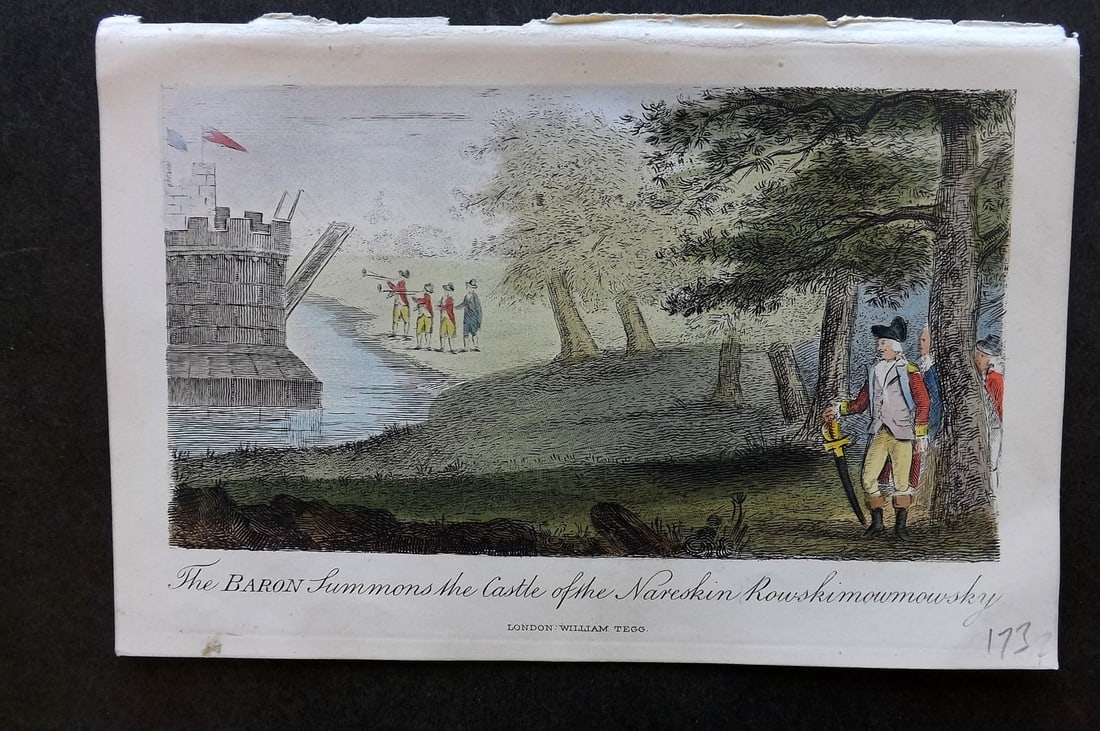 The BARON Summons the Castle of the Nareskin Rowskimowmowsky
LONDON: WILLIAM TEGG.
173